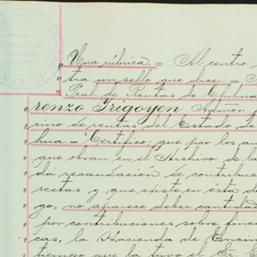 "Una rúbrica = Al centro
"tra un sello que dice: =
"Pral de Rentas de Chihua
renzo Irigoyen Admon
"rino de rentas del Estado de
"hua = Certifico: que por los
"que obran en el Archivo de la
"da recaudación de contribu
"rectas y que existe en ésta
"go, no aparece deber cantidad
"por contribuciones sobre fin
"cas, la Hacienda de Encin
"tiempo que la tuvo el Sr.